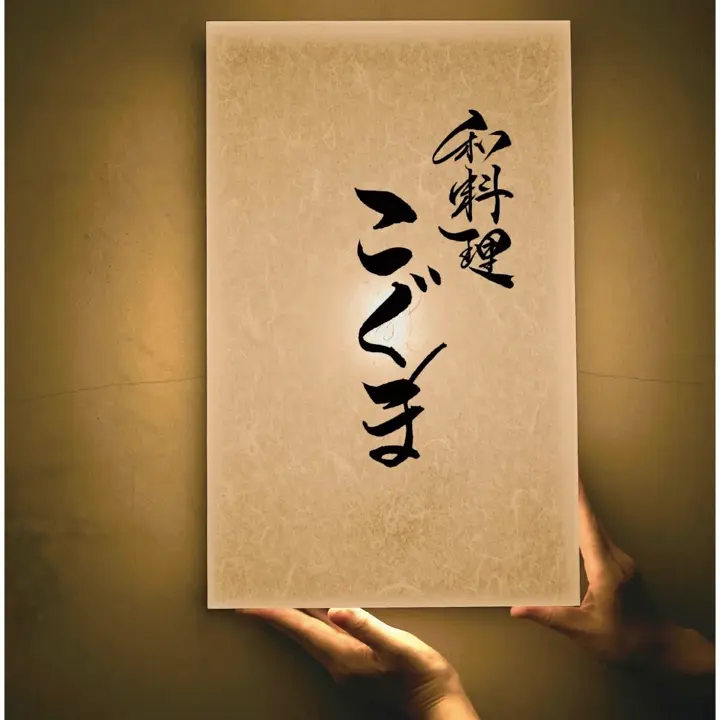 和料理
こぐま